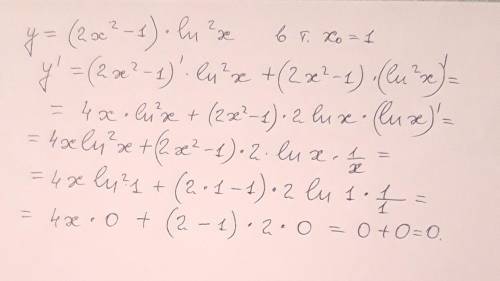 y = (2x² − 1) · ln²x   в т. x₀ = 1
y' = (2x² − 1)' · ln²x + (2x² − 1) · (ln²x)' =
= 4x · ln²x + (2x² − 1) · 2 ln x · (ln x)' =
= 4x ln²x + (2x² − 1) · 2 · ln x · 1/x =
= 4x ln²1 + (2 · 1 − 1) · 2 ln 1 · 1/1 =
= 4x · 0 + (2 − 1) · 2 · 0 = 0 + 0 = 0.